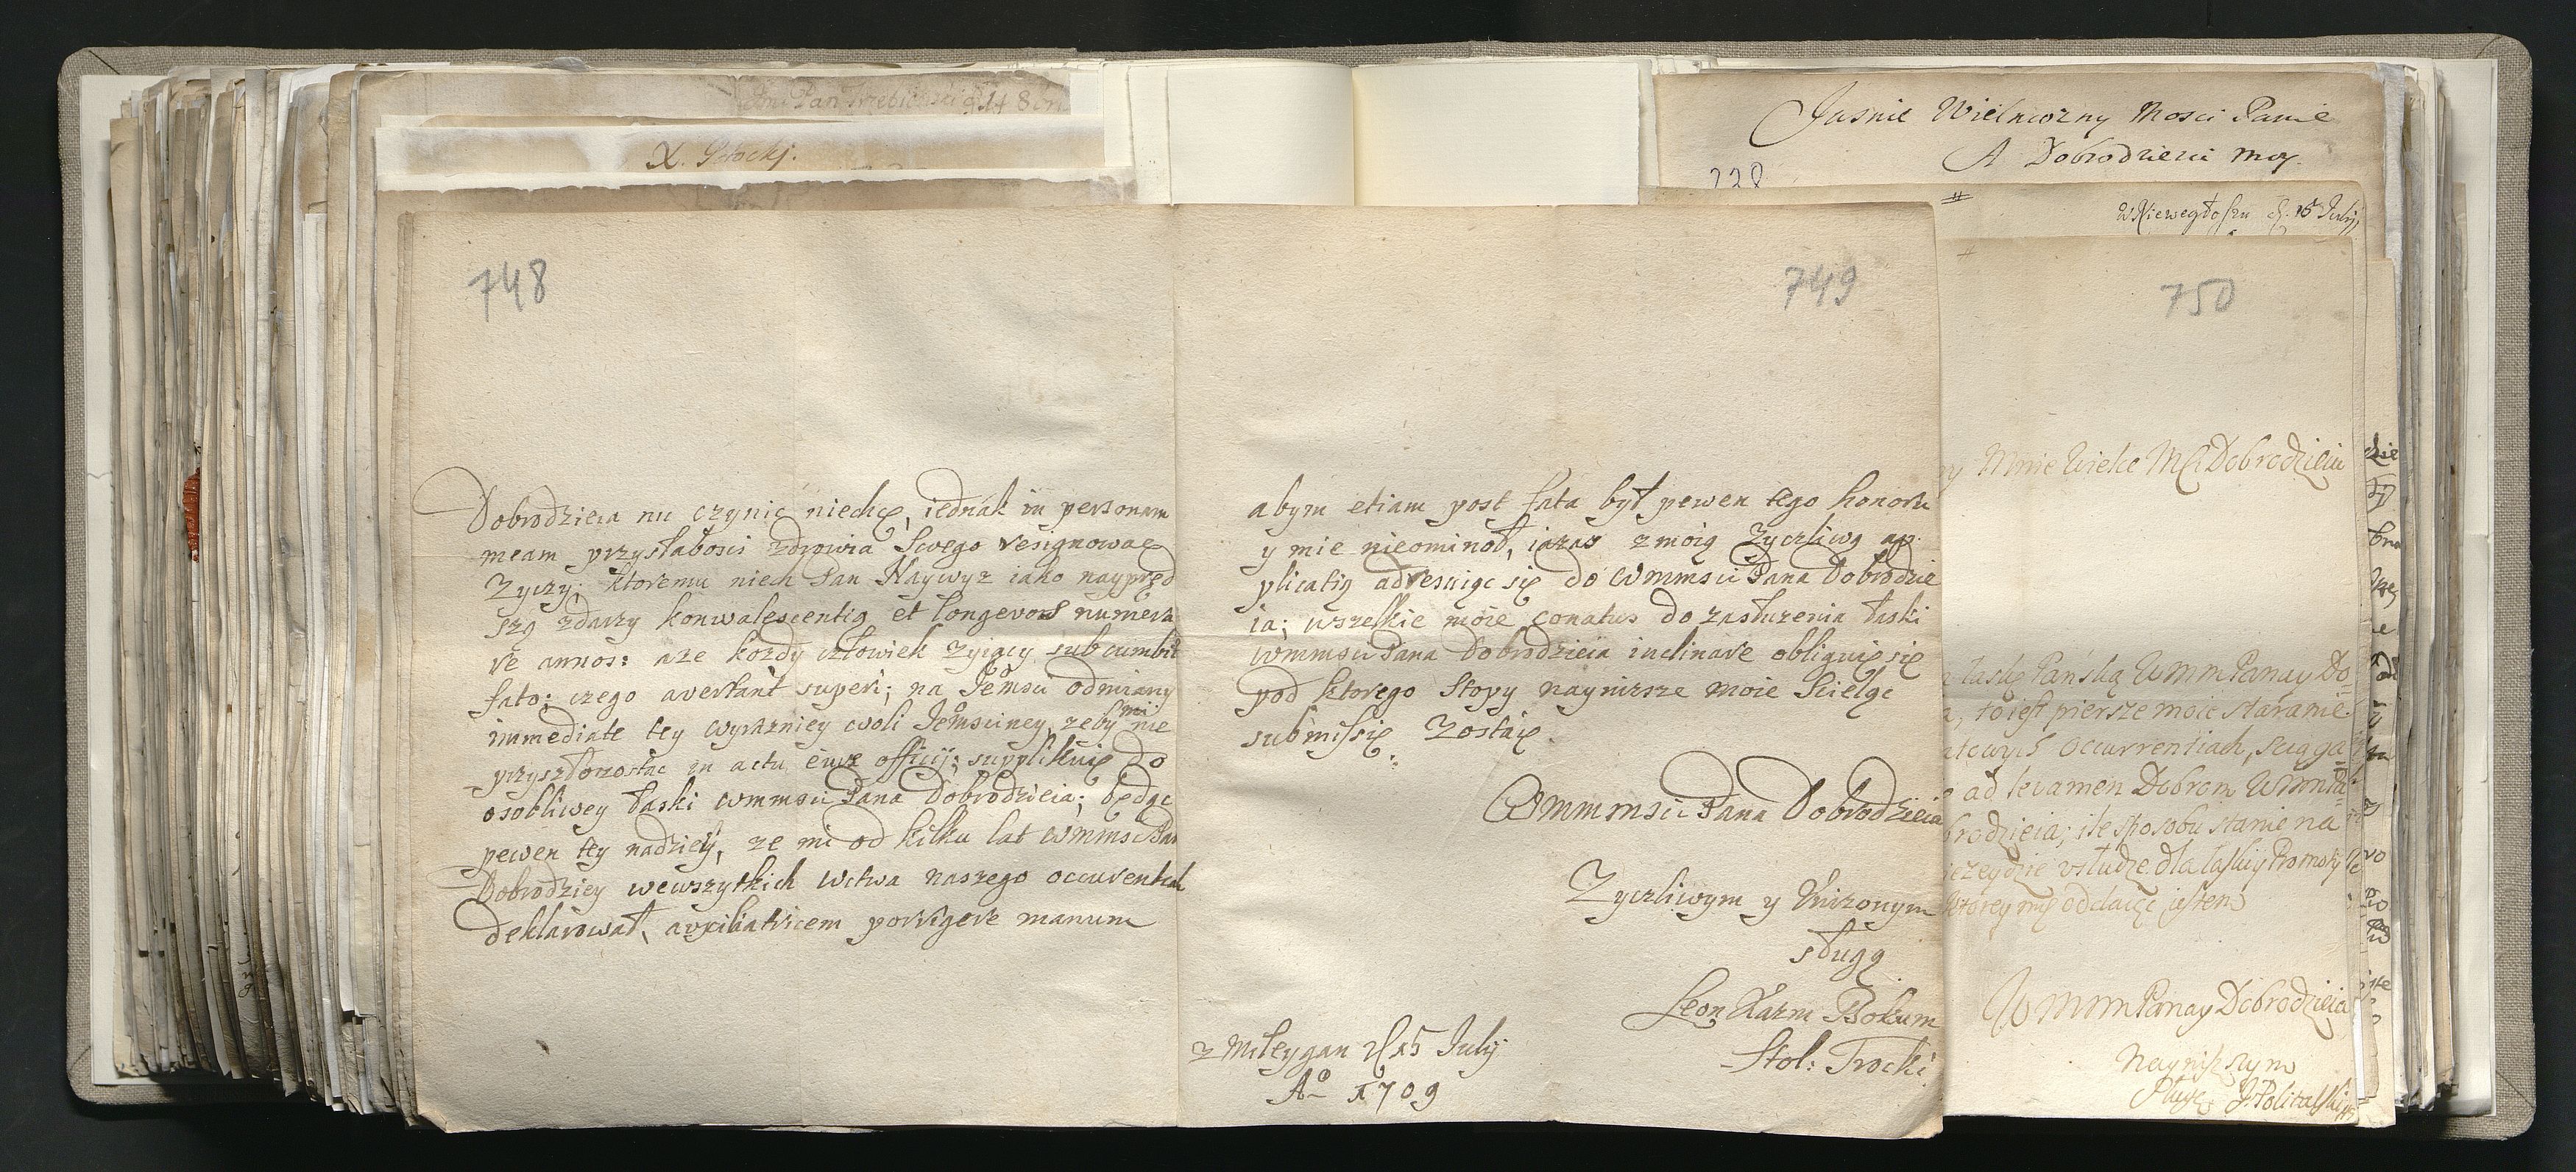 X. Potockj.
Jasnie Wielmozny Mosci Panie
A Dobrodzieiu moy.
228
d. 15 Julij
748
Dobrodzieia nu czynic niechę, iednak in personam
meam przysłabosci zdrowia Swego resignowac
Zyczy; ktoremu niech Pan Naywyz iako naypręd
szą zdarzy konwalescentią et longevos numera
re annos: aze kozdy człowiek zyiący subcumbit
fato; czego avertant superi; na Jemsci odmiany
immediate tey wyrazniey woli Jemsciney, zeby mi nie
przyszło zostac in actu eius officij; supplikuię do
osobliwey łaski wmmsci Pana Dobrodzieia; będąc
pewen tey nadzieij, ze mi od kilku lat wmmsci Pan
Dobrodziey wewszytkich wctwa naszego occurentiah
deklarował, auxiliatricem porrigere manum
749
abym etiam post fata był pewen tego honoru
y mie nieominoł, iazas zmoią zyczliwą ap
plicatią adresuiąc się do wmmsci Pana Dobrodzie
ia; wszelkie moie conatus do zasłuzenia łaski
wmmsci Pana Dobrodzieia inclinare obliguię się
pod ktorego Stopy naynizsze moie Scieląc
submissię zostaię.
Wmmmsci Pana Dobrodzieia
Zyczliwym y Unizonym
sługą
Leon Kazm Bokum
Stol: Trocki
z Mileygan d 15 Julij
Ao 1709
750
Mnie Wielce Mci Dobrodzieiu
łaskę Pańską WmmPanay Do
to iest piersze moie staranie
occurrentiach, sugga
ad levamen Dobrom Wmm
brodzieia; ile sposobu stanie na
usłudze dla łaskij Promskij
ktorey mię oddaięc iestem
WmmPanay Dobrodzieia
Nayniszszym
Sługą J Politalski